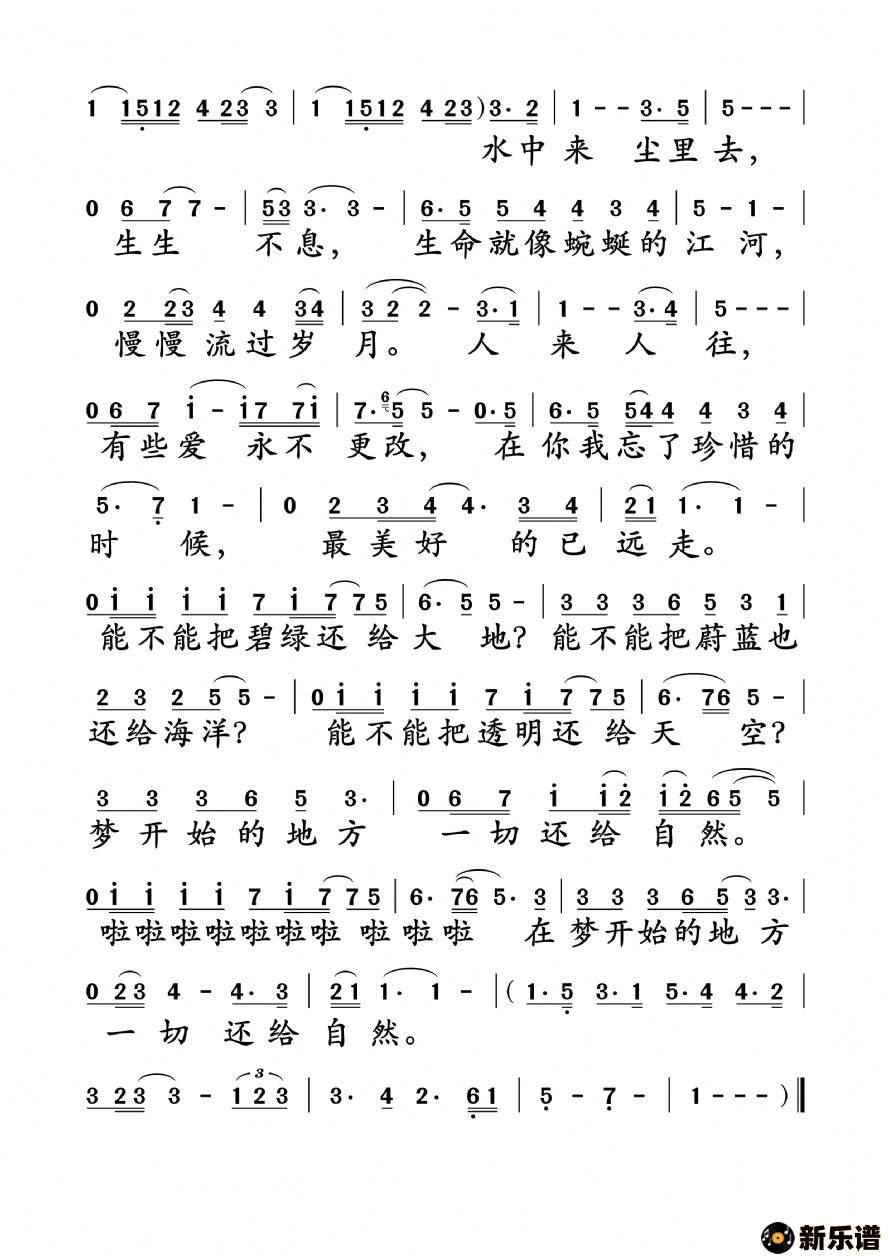 1 1512 4 23 3 | 1 1512 4 23)3· 2 | 1 - - 3· 5 | 5 - - - |
水中来 尘里去，
0 6 7 7 - | 53 3· 3 - | 6· 5 5 4 4 3 4 | 5 - 1 - |
生生 不息， 生命就像蜿蜒的江河，
0 2 23 4 4 34 | 3 2 2 - 3·1 | 1 - - 3·4 | 5 - - - |
慢慢流过岁月。 人来人往，
0 6 7 i - i7 7i | 7· 6 5 5 - 0·5 | 6· 5 54 4 4 3 4 |
有些爱 永不 更改， 在你我忘了珍惜的
5· 7 1 - | 0 2 3 4 4· 3 4 | 21 1· 1 - |
时候， 最美好 的已远走。
0 i i i i 7 i 7 7 5 | 6· 5 5 - | 3 3 3 6 5 3 1 |
能不能把碧绿还给大地？能不能把蔚蓝也
2 3 2 5 5 - | 0 i i i i 7 i 7 7 5 | 6· 76 5 - |
还给海洋？ 能不能把透明还给天空？
3 3 3 6 5 3· | 0 6 7 i i2 | i2 6 5 5 |
梦开始的地方 一切还给自然。
0 i i i i 7 i 7 7 5 | 6· 76 5· 3 | 3 3 3 6 5 3 3· |
啦啦啦啦啦啦啦 啦啦啦 在梦开始的地方
0 23 4 - 4· 3 | 21 1· 1 - | (1· 5 3· 1 5· 4 4· 2 |
一切还给自然。
3 23 3 - 3 1 2 3 | 3· 4 2· 61 | 5 - 7 - | 1 - - - )‖
新乐谱